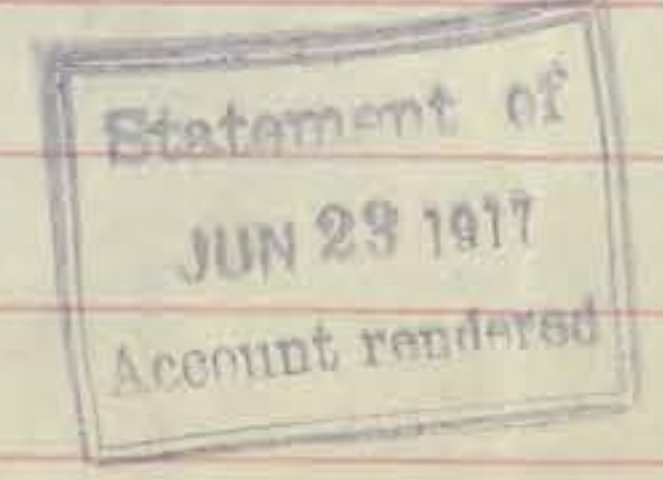 Statement of
JUN 23 1917
Account rendered